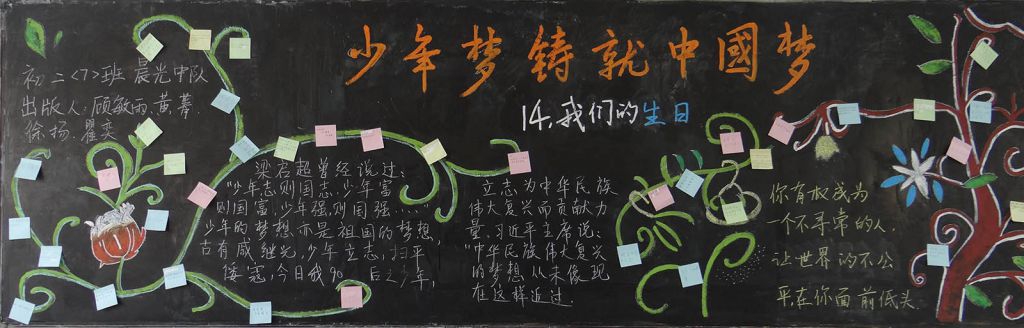 少年梦铸就中國梦
14,我们的生日
初二<7>班 晨光中队
出版人:顾敏雨,黄蓦,
徐扬,瞿奕
梁启超曾经说过:
"少年志则国志,少年富
则国富,少年强,则国强……
少年的梦想,亦是祖国的梦想,
古有戚继光,少年立志,扫平
倭寇,今日我90后之少年,
立志为中华民族
伟大复兴而贡献力
量,习近平主席说:
"中华民族伟大复兴
的梦想,从未像现
在这样近过.
你有权成为
一个不寻常的人.
让世界的不公
平,在你面前低头.